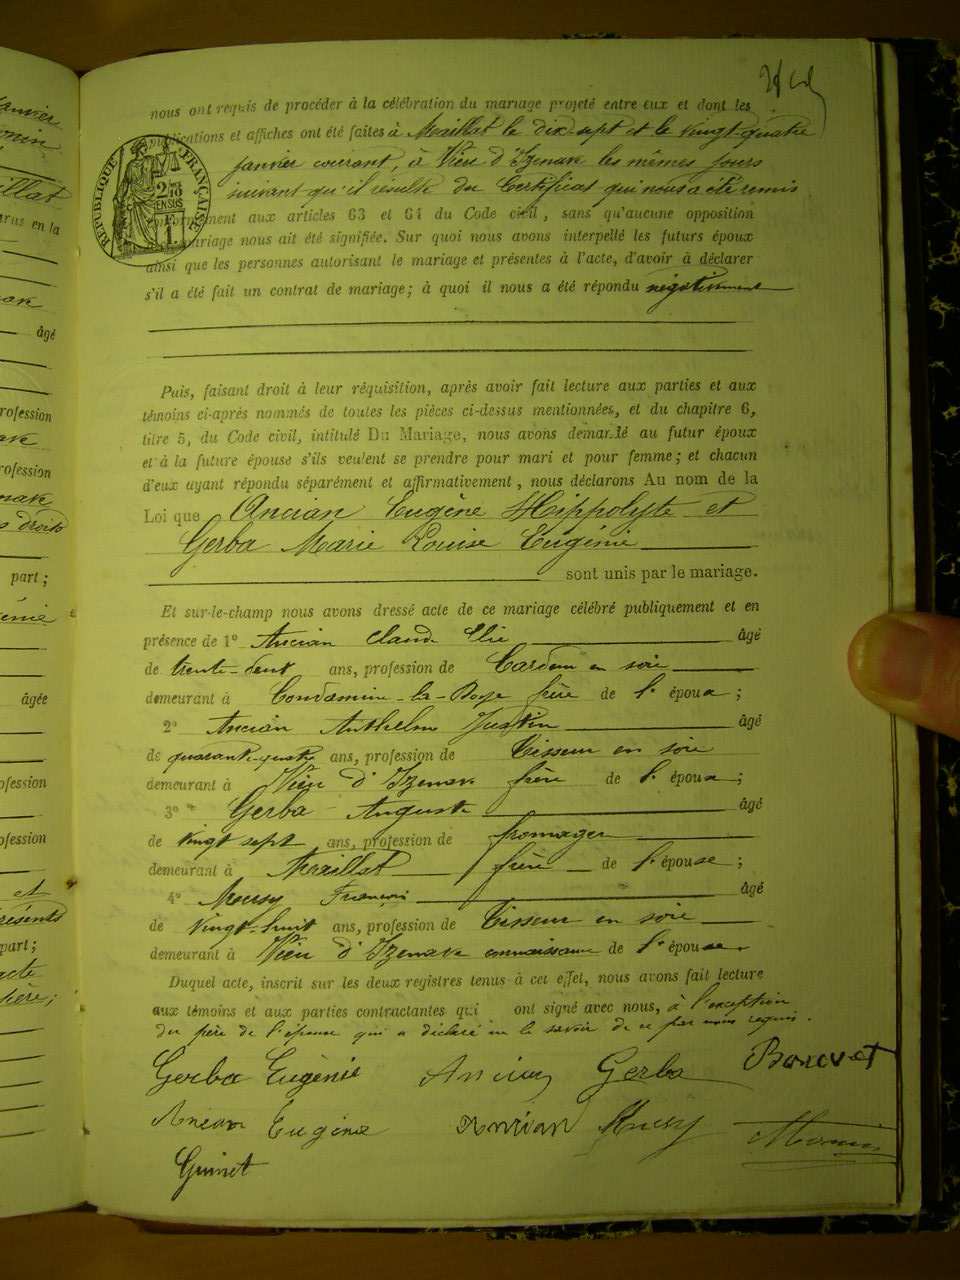 nous ont requis de procéder à la célébration du mariage projeté entre eux et dont les
publications et affiches ont été faites à Maillat le dix-sept et le vingt-quatre
janvier courant, à Vieu d'Izenave les mêmes jours
suivant qu'il résulte du Certificat qui nous a été remis
conformément aux articles 63 et 64 du Code civil, sans qu'aucune opposition
mariage nous ait été signifiée. Sur quoi nous avons interpellé les futurs époux
ainsi que les personnes autorisant le mariage et présentes à l'acte, d'avoir à déclarer
s'il a été fait un contrat de mariage; à quoi il nous a été répondu négativement
RÉPUBLIQUE FRANÇAISE
Puis, faisant droit à leur réquisition, après avoir fait lecture aux parties et aux
témoins ci-après nommés de toutes les pièces ci-dessus mentionnées, et du chapitre 6,
titre 5, du Code civil, intitulé Du Mariage, nous avons demandé au futur époux
et à la future épouse s'ils veulent se prendre pour mari et pour femme; et chacun
d'eux ayant répondu séparément et affirmativement, nous déclarons Au nom de la
Loi que Ancian Eugène Hippolyte et
Gerba Marie Louise Eugénie
sont unis par le mariage.
Et sur-le-champ nous avons dressé acte de ce mariage célébré publiquement et en
présence de 1° Ancian Claude Elie âgé
de trente-deux ans, profession de Cardeur en soie
demeurant à Condamine-la-Doye frère de l'époux;
2° Ancian Anthelme Justin âgé
de quarante-quatre ans, profession de Tisseur en soie
demeurant à Vieu d'Izenave frère de l'époux;
3° Gerba Auguste âgé
de vingt sept ans, profession de fromager
demeurant à Maillat frère de l'épouse;
4° François âgé
de vingt-huit ans, profession de Tisseur en soie
demeurant à Vieu d'Izenave connaissance de l'épouse
Duquel acte, inscrit sur les deux registres tenus à cet effet, nous avons fait lecture
aux témoins et aux parties contractantes qui ont signé avec nous, à l'exception
du père de l'épouse qui a déclaré ne le savoir de ce par nous requis.
Gerba Eugénie Ancian Gerba Bonevat
Ancian Eugène Ancian Monin
Guinet